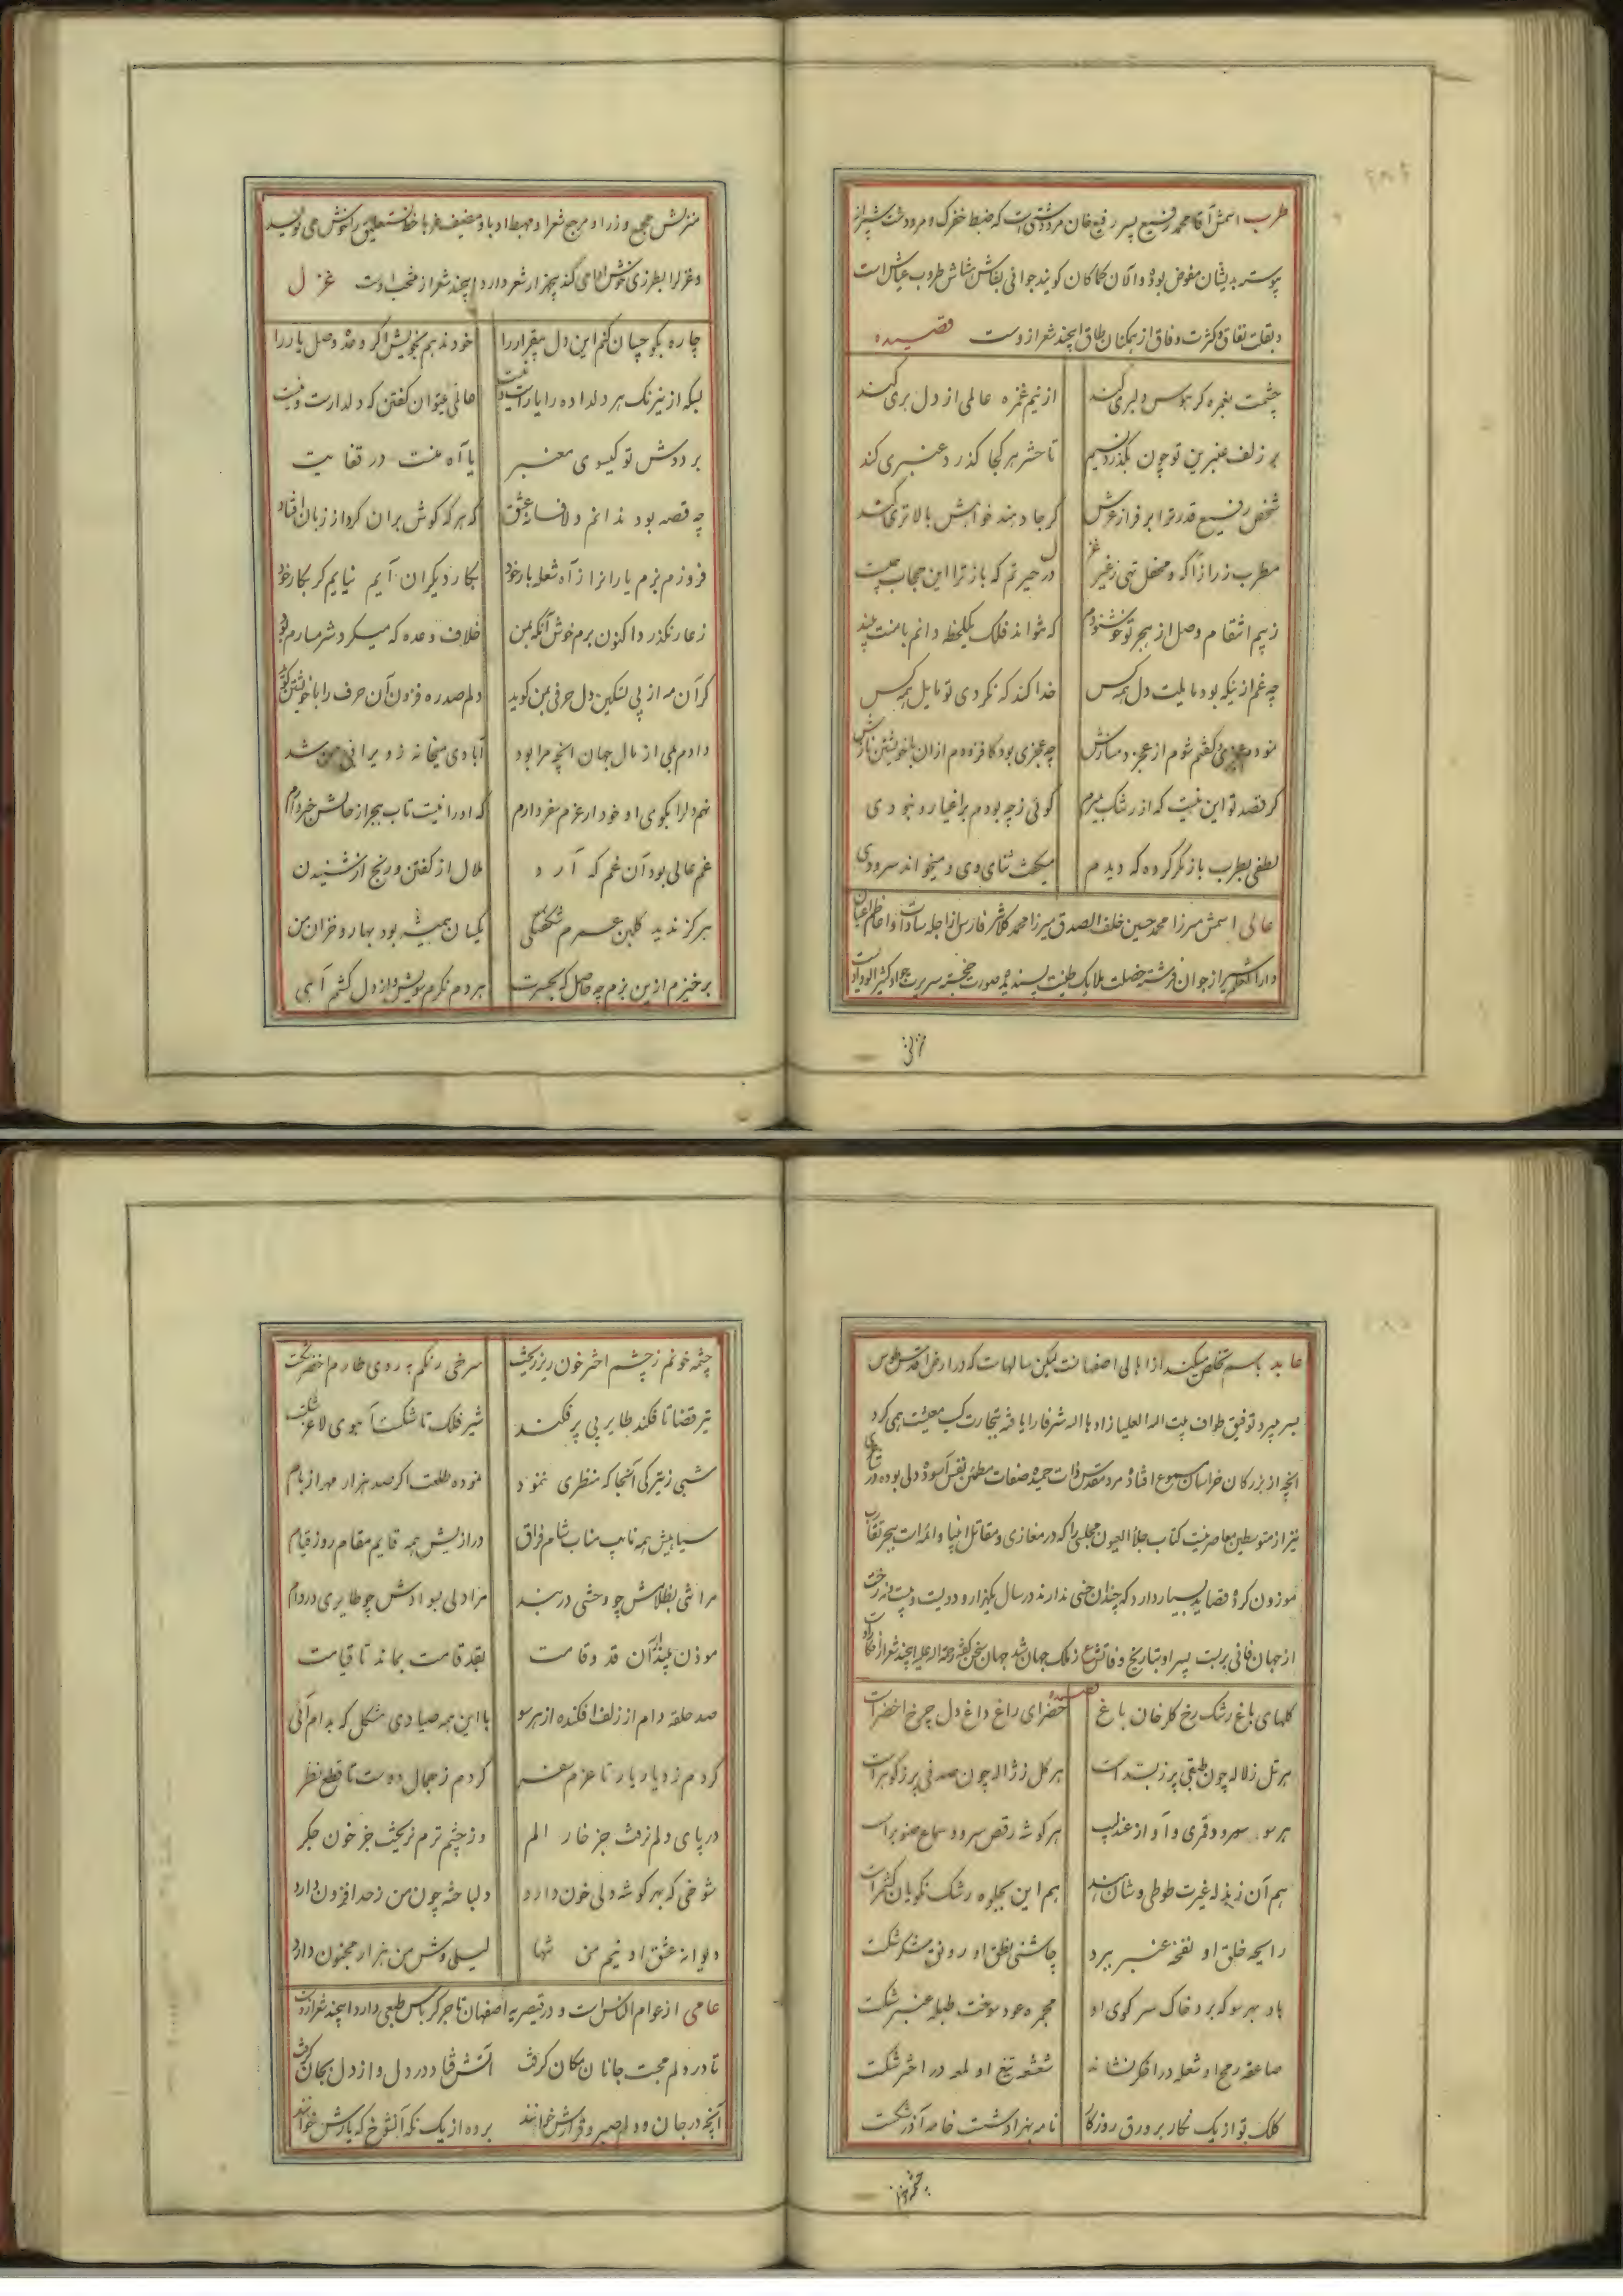 طرب اسمش آقا محمد رفیع پسر رفیع خان مرودشتی است که ضبط خفرک و مرودشت شیراز
پیوسته بدیشان مفوض بوده و الان کماکان کویند جوانی بشاش طروب عیاش است
و بقلت نفاق و کثرت وفاق از همکنان طاق اینچند شعر از وست قصیده
چشمت بغمزه کر هوس دلبری کند از نیم غمزه عالمی از دل بری کند
بر زلف عنبرین تو چون بکذرد نسیم تا حشر هر کجا کذرد عنبری کند
شخص رفیع قدر ترا بر فراز عرش کر جا دهند خواهش بالاتری کند
غزل
مطرب ز راز آکه و محفل تهی ز غیر در حیرتم که باز ترا این حجاب چیست
ز بیم انتقام وصل از هجر تو خوشنودم که نتواند فلک یکلحظه دانم با منت بیند
چه غم ازینکه بود مایلت دل همه کس خدا کند که نکردی تو مایل همه کس
نمودم عجزی کفتم شوم از عجز دمسازش چه عجزی بود کافزودم ازان با خویشتن نازش
کر قصد تو این نیست که از رشک بمیرم کوئی ز چه بودم بر اغیار و نبودی
لطفی بطرب باز مکر کرده که دیدم میکفت ثنای وی و میخواند سرودی
عالی اسمش میرزا محمد حسین خلف الصدق میرزا محمد کلانتر فارس از اجله سادات و اعاظم اعیان
دارالعلم شیراز جوان فرشته خصلت ملایک طینت پسندیده صورت خجسته سیرت جواد کثیر الوداد است
منزلش
منزلش مجمع وزرا و مرجع شعرا و مهبط ادبا و مضیف غربا خط نستعلیق را خوش می نویسد
و غزل را بطرزی خوش املا می کند پنجهزار شعر دارد اینچند شعر از منتخب اوست غزل
چاره بکو چسان کنم این دل بیقرار را خود ندهم بخویش اکر وعده وصل یار را
بسکه از نیرنک هر دلداده را یار است و نیست عالمی میتوان کفتن که دلدارست و نیست
بر دوش تو کیسوی معنبر یا آه منت در قفا یت
چه قصه بود ندانم دلا فسانه عشق که هر که کوش بران کرد از زبان افتاد
فروزم بزم یارانرا ز آه شعله بار خود بکار دیکران آیم نیایم کر بکار خود
ز عار نکذرد اکنون برم خوش آنکه بمن خلاف وعده که میکرد شرمسارم بود
کر آن مه از پی تسکین دل حرفی بمن کوید دلم صد ره فزون آن حرف را با خویشتن کوید
دادم بمی از مال جهان انچه مرا بود آبادی میخانه ز ویرانی من شد
نهم دل را بکوی او خود ار عزم سفر دارم که او را نیست تاب هجر از حالش خبر دارم
غم عالی بود آن غم که آرد ملال از کفتن و رنج از شنیدن
هرکز ندید کلبن عمرم شکفتکی یکسان همیشه بود بهار و خزان من
برخیزم ازین بزم چه حاصل که بحسرت هر دم نکرم سویش و از دل کشم آهی
عابد باسم تخلص میکند از اهالی اصفهانست لیکن سالهاست که در ارض اقدس طوس
بسر میبرد توفیق طواف بیت الله العلیا زادها الله شرفا را یافته بتجارت کسب معیشت همی کرد
انچه از بزرکان خراسان مسموع افتاده مرد مقدس ذات حمیده صفات مطمئن نفس آسوده دلی بوده در شاعری
نیز از متوسطین معاصرینست کتاب جلاء العیون مجلسی را که در مغازی و مقاتل انبیا و ائمه است ببحر تقارب
موزون کرده قصاید بسیار دارد که چندان حسنی ندارند در سال یکهزار و دویست و بیست و نه رخت
از جهان فانی بربست پسر او بتاریخ وفاتش ع ز ملک جهان شد جهان سخن کفته رحمة الله علیه اینچند شعر از
قصیده
کلهای باغ رشک رخ کلرخان باغ خضرای راغ داغ دل چرخ اخضر است
هر تل ز لاله چون طبقی پر زبسد است هر کل ز ژاله چون صدفی پر ز کوهر است
هر سو سرود قمری و آواز عندلیب هر کوشه رقص سرو و سماع صنوبر است
هم آن ز بذله غیرت طوطی وشان هند هم این بجلوه رشک نکویان کشمر است
رایحه خلق او نفخه عنبر ببرد چاشنی نطق او رونق شکر شکست
باد بهر سو که برد خاک سر کوی او مجمره عود سوخت طبله عنبر شکست
صاعقه رمح او شعله در اخکر نشاند شعشعه تیغ او لمعه در اختر شکست
کلک تو از یک نکار بر ورق روزکار نامه بهزاد شست خامه آذر شکست
چشمه خونم ز چشم اختر خون ریز ریخت سرخی رنکم به روی طارم اخضر شکست
تیر قضا تا فکند طایر بی پر فکند شیر فلک تا شکست آهوی لاغر شکست
شبی ز تیرکی آنجا که منظری ننمود نموده طلعت اکر صد هزار مهر از بام
سیاهیش همه نایب مناب شام فراق درازیش همه قایم مقام روز قیام
مرا تنی بظلامش چو وحشی در بند مرا دلی بسوادش چو طایری در دام
موذن بیند ار آن قد و قامت بقد قامت بماند تا قیامت
صد حلقه دام از زلف افکنده از هر سو با این همه صیادی مشکل که بدام آئی
کردم ز دیار یار تا عزم سفر کردم ز جمال دوست تا قطع نظر
در پای دلم نرفت جز خار الم وز چشم ترم نریخت جز خون جکر
شوخی که بهر کوشه دلی خون دارد دلباخته چون من ز حد افزون دارد
دیوانه عشق او نیم من تنها لیلی وش من هزار مجنون دارد
عامی از عوام الناس است و در قیصریه اصفهان تاجر کرباس طبعی دارد اینچند شعر ازوست
تا در دلم محبت جانان مکان کرفت آتش فتاد در دل و از دل بجان کرفت
آنچه در جان و دلم صبر و قرارش خوانند برده از یک نکه آنشوخ که یارش خوانند